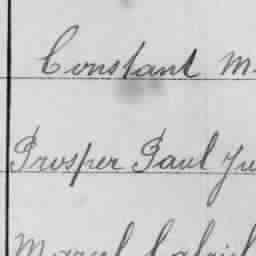 Constant M
Prosper Paul Ju
Marcel Gabriel